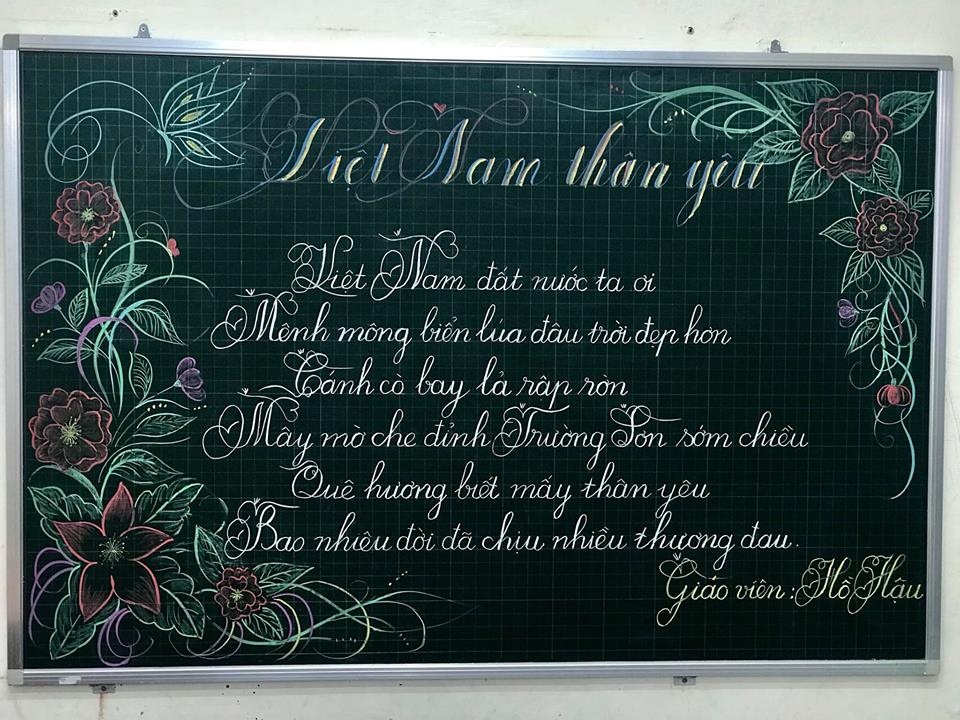 Việt Nam thân yêu
Việt Nam đất nước ta ơi
Mênh mông biển lúa đâu trời đẹp hơn
Cánh cò bay lả rập rờn
Mây mờ che đỉnh Trường Sơn sớm chiều
Quê hương biết mấy thân yêu
Bao nhiêu đời đã chịu nhiều thương đau.
Giáo viên : Hồ Hậu